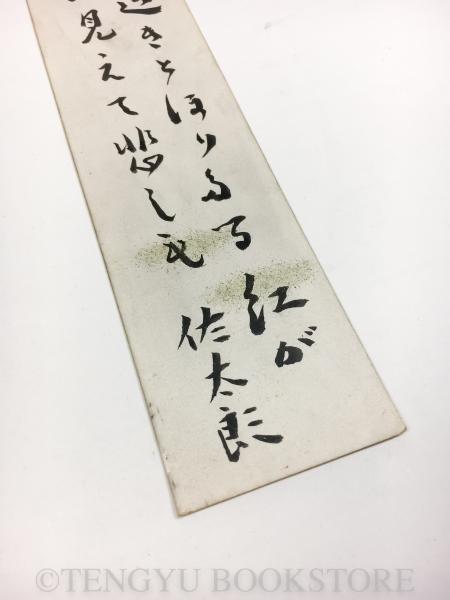 透きとほりたる紅が
見えて悲しも
佐太郎
©TENGYU BOOKSTORE